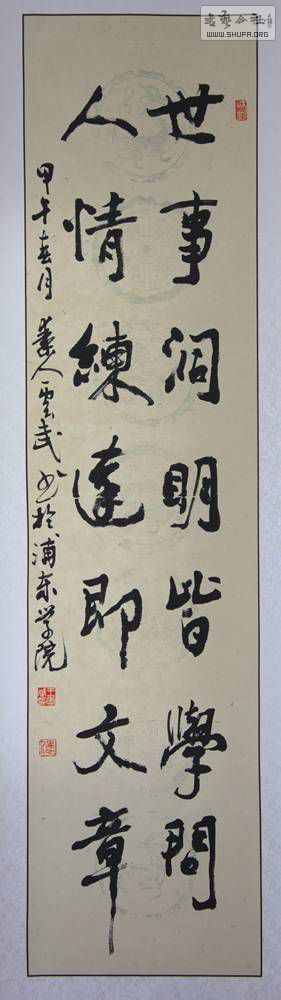 世事洞明皆學問
人情練達即文章
甲午春月
雲武书於浦东学院
书艺公社
WWW.SHUFA.ORG